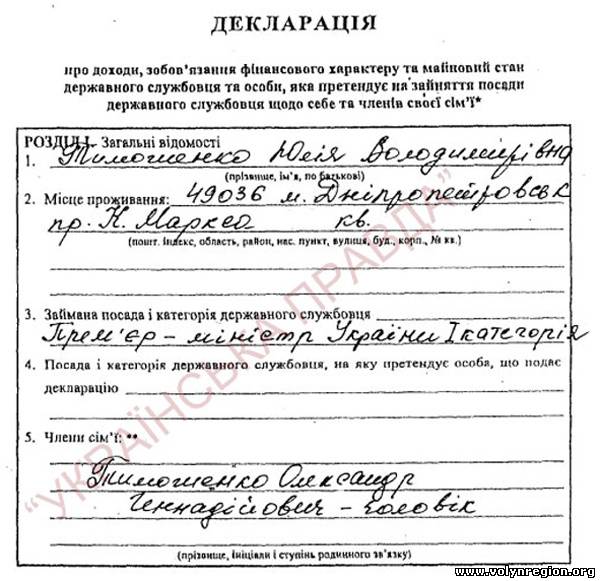 ДЕКЛАРАЦІЯ
про доходи, зобов'язання фінансового характеру та майновий стан
державного службовця та особи, яка претендує на зайняття посади
державного службовця щодо себе та членів своєї сім'ї*
РОЗДІЛ I. Загальні відомості
1. Тимошенко Юлія Володимирівна
(прізвище, ім'я, по батькові)
2. Місце проживання: 49036 м. Дніпропетровськ
пр. К. Маркса кв.
(пошт. індекс, область, район, нас. пункт, вулиця, буд., корп., № кв.)
3. Займана посада і категорія державного службовця
Прем'єр - міністр України I категорія
4. Посада і категорія державного службовця, на яку претендує особа, що подає
декларацію
5. Члени сім'ї: **
Тимошенко Олександр
Геннадійович - чоловік
(прізвище, ініціали і ступінь родинного зв'язку)
"УКРАЇНСЬКА ПРАВДА"
www.volynregion.org